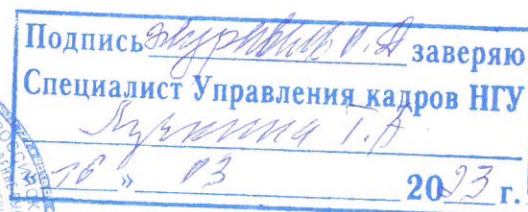 Подпись Журавель О.Д. заверяю
Специалист Управления кадров НГУ
Т.А
« 16 » 03 2023 г.